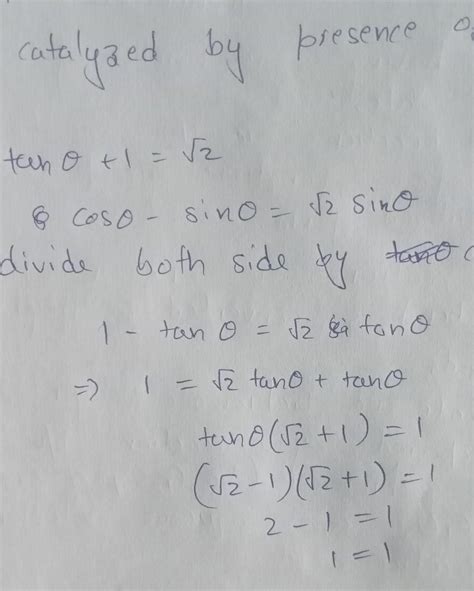 catalyzed by presence o
tan θ + 1 = √2
cosθ - sinθ = √2 sinθ
divide both side by
1 - tan θ = √2 tanθ
⇒ 1 = √2 tanθ + tanθ
tanθ(√2 + 1) = 1
(√2 - 1)(√2 + 1) = 1
2 - 1 = 1
1 = 1